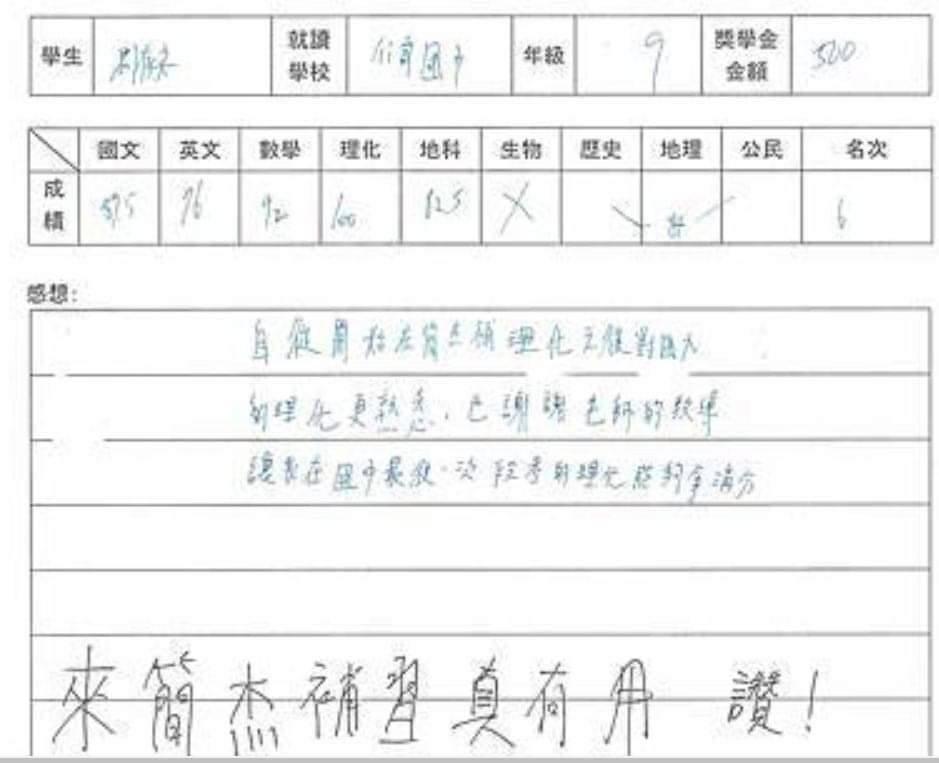 學生 就讀學校 國中 年級 9 獎學金金額 500
國文 英文 數學 理化 地科 生物 歷史 地理 公民 名次
成績 76 92 100 82.5 X 6
感想:
自從開始在簡杰補理化之後對國九
的理化更熟悉，也謝謝老師的教導
讓我在國中最後一次段考的理化能夠拿滿分
來簡杰補習真有用 讚!